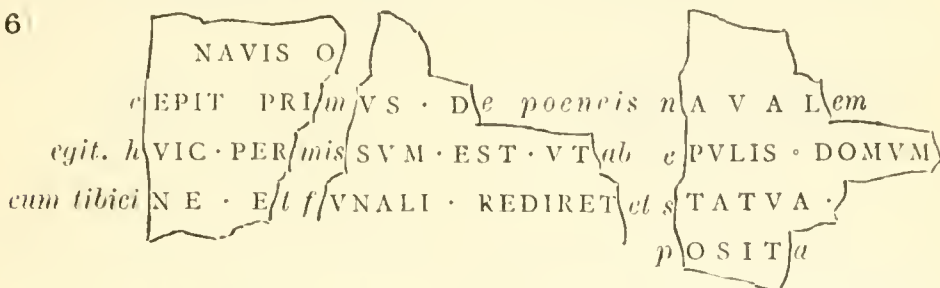 6
NAVIS O
cEPIT PRImVS · De poeneis nAVALem
egit. hVIC · PERmisSVM · EST · VT ab ePVLIS · DOMVM
cum tibiciNE · Et fVNALI · REDIRET et sTATVA ·
pOSITa